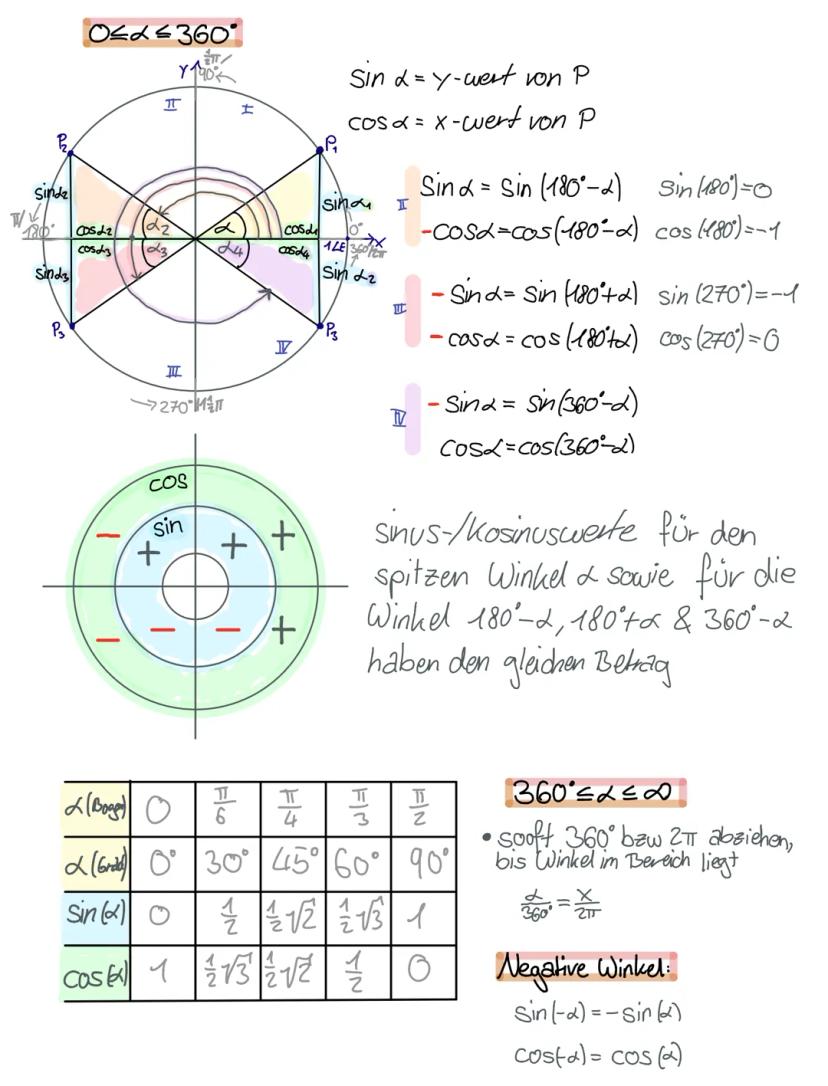 0≤α≤360°
Y
½π
90°
II
I
P₂
P₁
sinα₂
sinα₁
π
180°
cosα₂
α₂
α
cosα₁
0°
X
cosα₃
α₃
α4
cosα4
1LE
360°/2π
sinα₃
sin α₂
P₃
P₃
III
IV
270°
1½π
sin α = y-wert von P
cos α = x-wert von P
II
Sin α = Sin (180°-α) sin(180°)=0
-cosα=cos(180°-α) cos(180°)=-1
III
- Sinα = Sin (180°+α) sin (270°)=-1
- cosα = cos (180°+α) cos (270°)=0
IV
- Sinα = Sin(360°-α)
cosα=cos(360°-α)
cos
sin
- + + +
- - - +
sinus-/Kosinuswerte für den
spitzen Winkel α sowie für die
Winkel 180°-α, 180°+α & 360°-α
haben den gleichen Betrag
α(Bogen) 0 π/6 π/4 π/3 π/2
α(Grad) 0° 30° 45° 60° 90°
Sin(α) 0 1/2 1/2√2 1/2√3 1
cos(α) 1 1/2√3 1/2√2 1/2 0
360°≤α≤∞
• sooft 360° bzw 2π abziehen,
bis Winkel im Bereich liegt
α/360° = x/2π
Negative Winkel:
sin(-α) = - sin(α)
cos(-α) = cos(α)